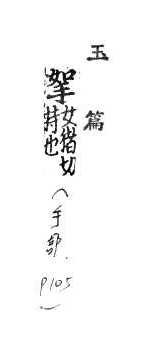 玉篇
挐女豬切
持也
(手部.
P105)